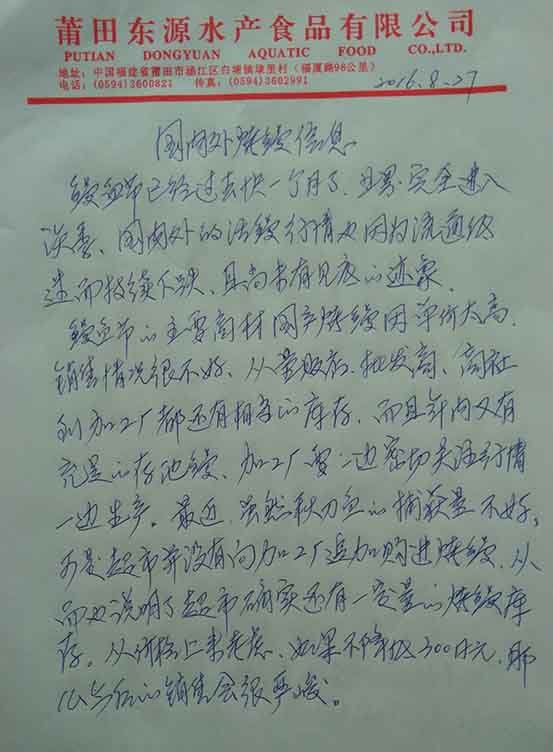 莆田东源水产食品有限公司
PUTIAN DONGYUAN AQUATIC FOOD CO.,LTD.
地址：中国福建省莆田市涵江区白塘镇埭里村（福厦路98公里）
电话：(0594)3600821 传真：(0594)3602991
2016.8.27
国内外烤鳗信息
鳗鱼节已经过去快一个月了，业界完全进入
淡季、国内外的活鳗行情也因为流通缓
迷而持续下跌、且尚未有见底的迹象。
鳗鱼节的主要商材国产烤鳗因单价太高、
销售情况很不好、从量贩店、批发商、商社
到加工厂都还有相当的库存，而且年内又有
充足的存池鳗、加工厂要一边密切关注行情
一边生产。最近，虽然秋刀鱼的捕获量不好，
可是超市并没有向加工厂追加购进烤鳗，从
而也说明了超市确实还有一定量的烤鳗库
存。从价格上来考虑、如果不降低300日元，那
么今后的销售会很严峻。